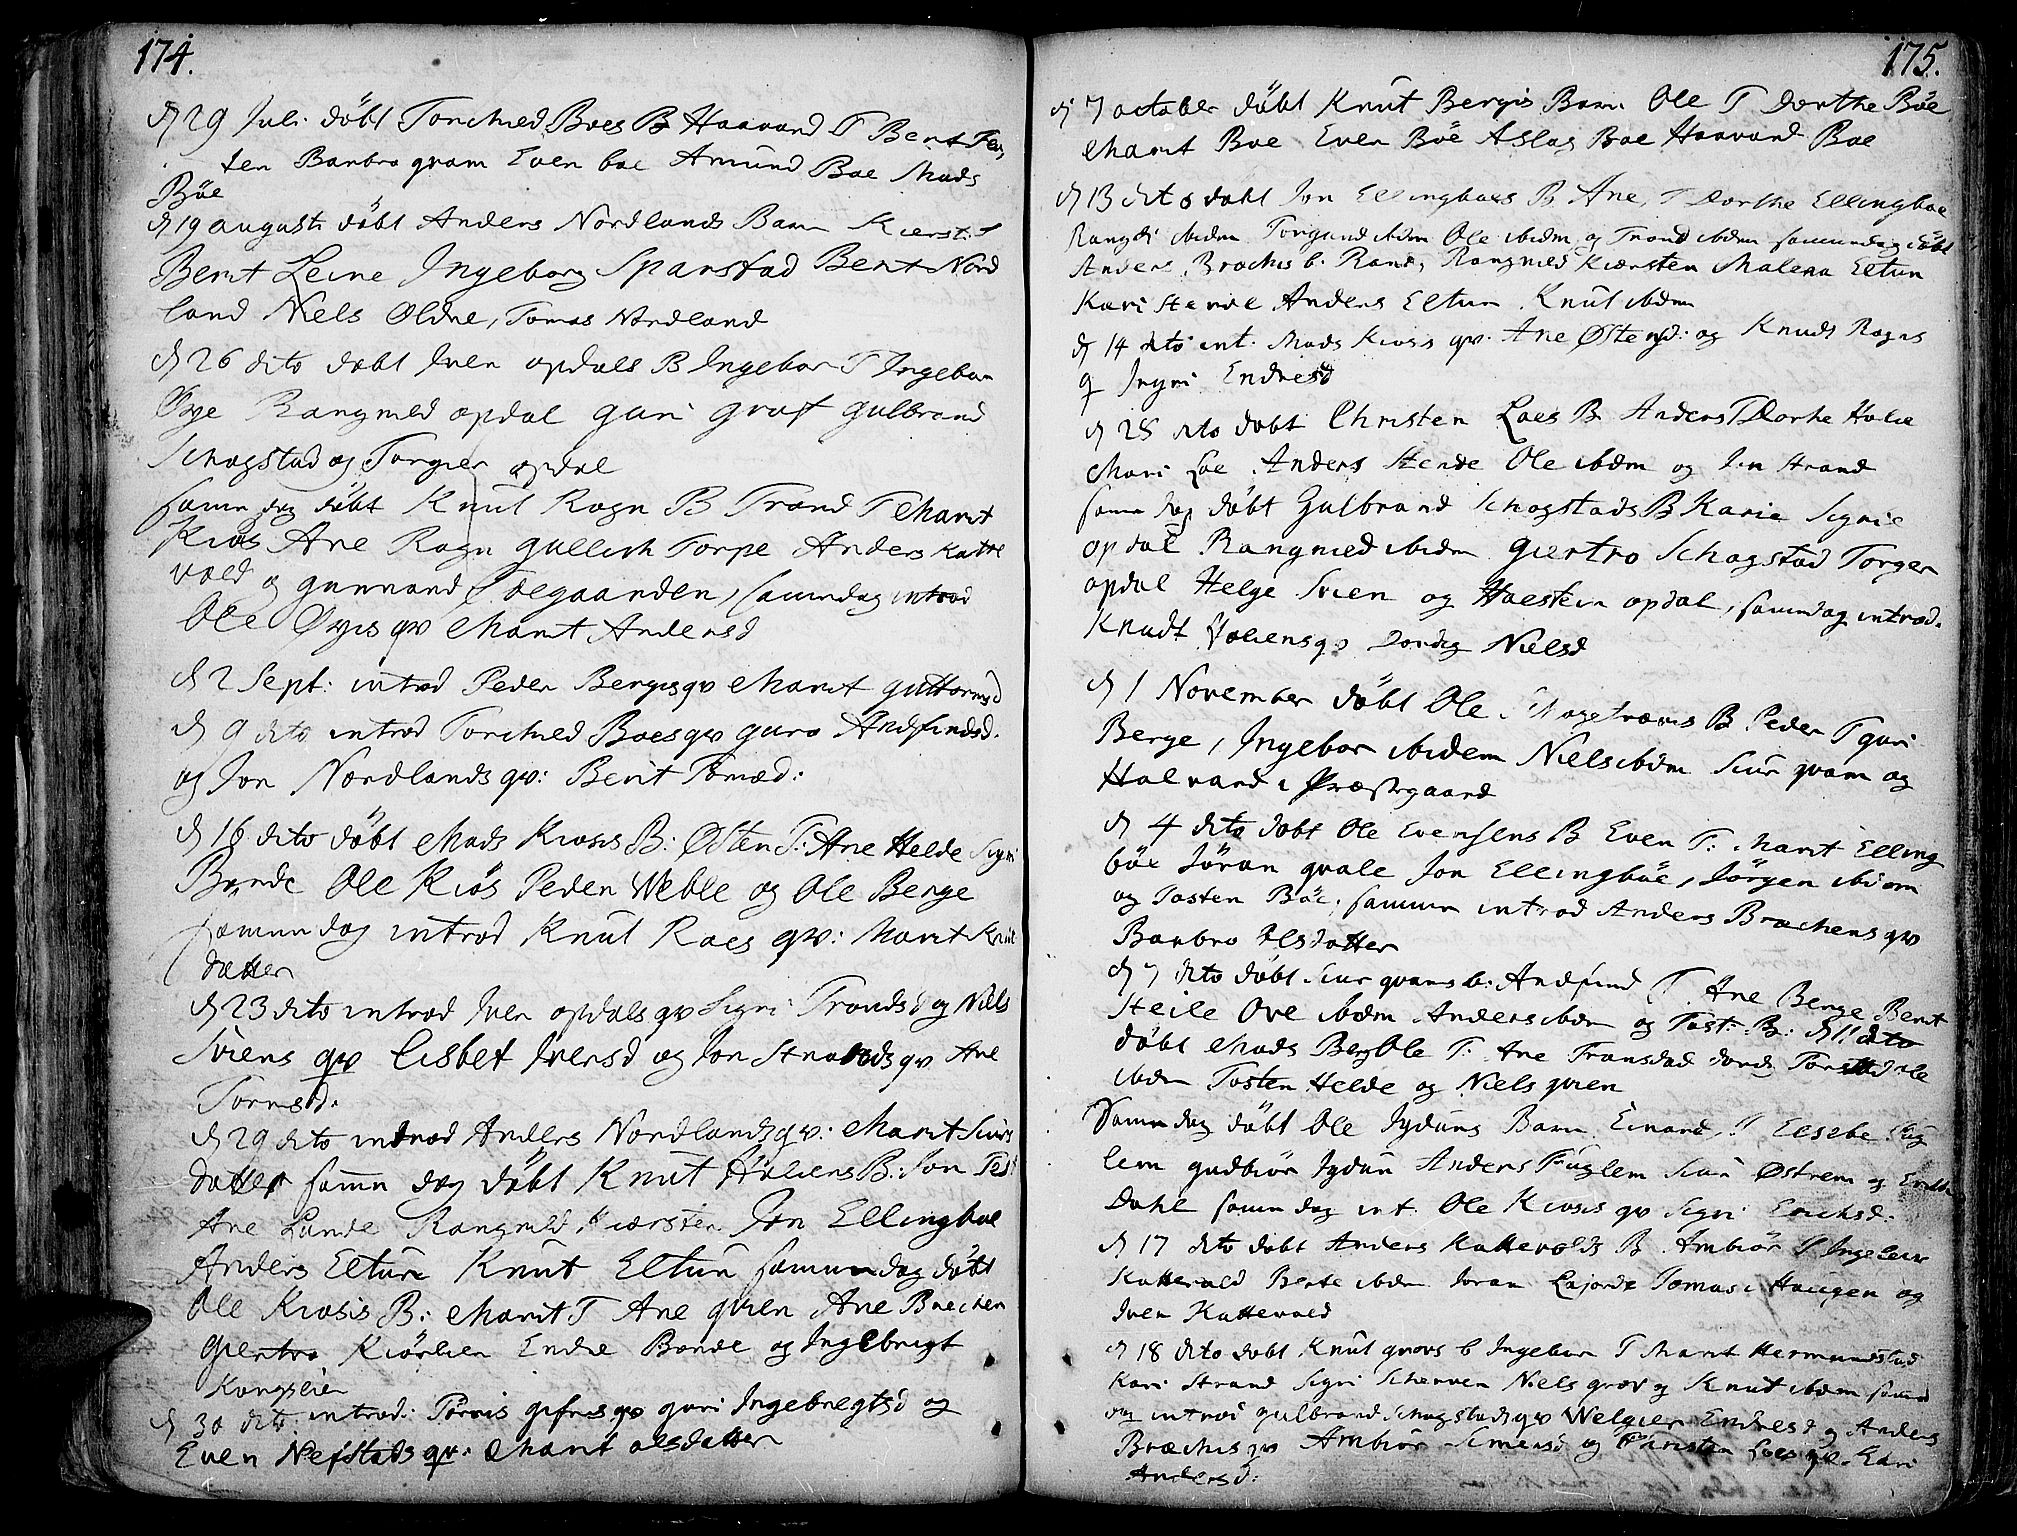 174.
d 29 Juli döbt Torchied Boes B Haavand T Berit
ten Barbro qvam Even boe Amund Boe Mads
Böe
d 19 augusti döbt Anders Nordlands Barn Kiersti
Berit Leine Ingeborg Sparstad Berit Nord
land Niels Oldre, Tomas Nordland
d 26 dito döbt Iver opdals B Ingebor T Ingebor
Øye Rangnied opdal Guri Grøf Gulbrand
Schogstad og Torgier opdal
samme dag döbt Knut Rogn B Trond T Marit
Kiøs Ane Rogn Gullich Torpe Anders Katte
vold og gunnand, samme dag introd
Ole Øyis qv Marit Andersd
d 2 Sept: introd Peder Bergis qv Marit guttormsd
d 9 dito introd Torchied Boes qv guro Andfindsd.
og Jon Nordlands qv: Berit Tomæd:
d 16 dito döbt Mads Kiøsis B: Østen T: Ane Helde Sigri
Bonde Ole Kiøs Peder Weble og Ole Berge
samme dag introd Knut Roes qv: Marit Knut
datter
d 23 dito introd Iver opdals qv Sigri Trondsd og Niels
Sviens qv Lisbet Iversd og Jon Strands qv Ane
Tormsd:
d 29 dito introd Anders Nordlands qv: Marit Siurs
datter samme dag döbt Knut Høliens B: Jon Test
Ane Lunde Rangnild Kiærsten Jon Ellingboe
Anders Eltun Knut Eltun samme dag döbt
Ole Kiøsis B: Marit T Ane qvien Ane Brechen
Giertro Kiörlien Endre Bonde og Ingebrigt
Kongslien
d 30 dito introd: gifres qv guri Ingebregtsd og
Even Nefstads qv: Marit olsdatter
175.
d 7 october döbt Knut Bergis Barn Ole T Dorthe Böe
Marit Boe Even Böe Aslag Boe Haavand Boe
d 13 dito döbt Jon Ellingboes B Ane, T Dorthe Ellingboe
Rangdi ibidm Torgund ibidm Ole ibidm og Trond ibidm sammedag döbt
Anders Brochis b. Rand, Rangnied Kiersten Malena Eltun
Kari Stende Anders Eltun Knut ibidm
d 14 dito int. Mads Kiosis qv. Ane Østensd: og Knuds Rogns
q Ingri Endresd
d 28 dito döbt Christen Loes B Anders T Dorthe Holie
Mari Loe Anders Stende Ole ibidm og Jon Strand
samme dag döbt Gulbrand Schogstads B Karie Sigrie
opdal Rangnied ibidm Giertro Schogstad Torger
opdal Helge Svien og Hoestein opdal, samme dag introd.
Knudt Holiens qv Dordig Nielsd
d 1 November döbt Ole B Peder T guri
Berge, Ingebor ibidem Niels ibidm Siur qvam og
Halvard i Præstgaard
d 4 dito döbt Ole Evensens B Even T: Marit Elling
böe Jöran qvale Jon Ellingböe, Jörgen ibidem
og Tosten Böe, samme introd Anders Brochens qv
Barbro Olsdatter
d 7 dito döbt Siur qvams b: Andfind T Ane Berge Berit
Steile Ove ibidm Anders ibidm og Tost: B: d 11 dito
döbt Mads Berg Ole T: Ane Dordi ole
ibidm Tosten Helde og Niels qvien
Samme dag döbt Ole Jyduns Barn Einard, T Elsebe Fug
lem gudbiör Jydun Anders Fuglem Siur Østrem og
Dahl samme dag int. Ole Kiosis qv Sigri Erichsd.
d 17 dito döbt Anders Kattevolds B Ambiör T Ingebor
Kattevold Berte ibidm Joran Lajorde Tomas i Haugen og
Iver Kattevold
d 18 dito döbt Knut grovs b Ingebor T Marit Hermundstad
Kari Strand Sigri Scherven Niels grøv og Knut ibidm samme
dag introd gulbrand Schogstads qv Welgier Endresd og Anders
Brochis qv Ambiör Simensd og Christen Loes qv Kari
Andersd: